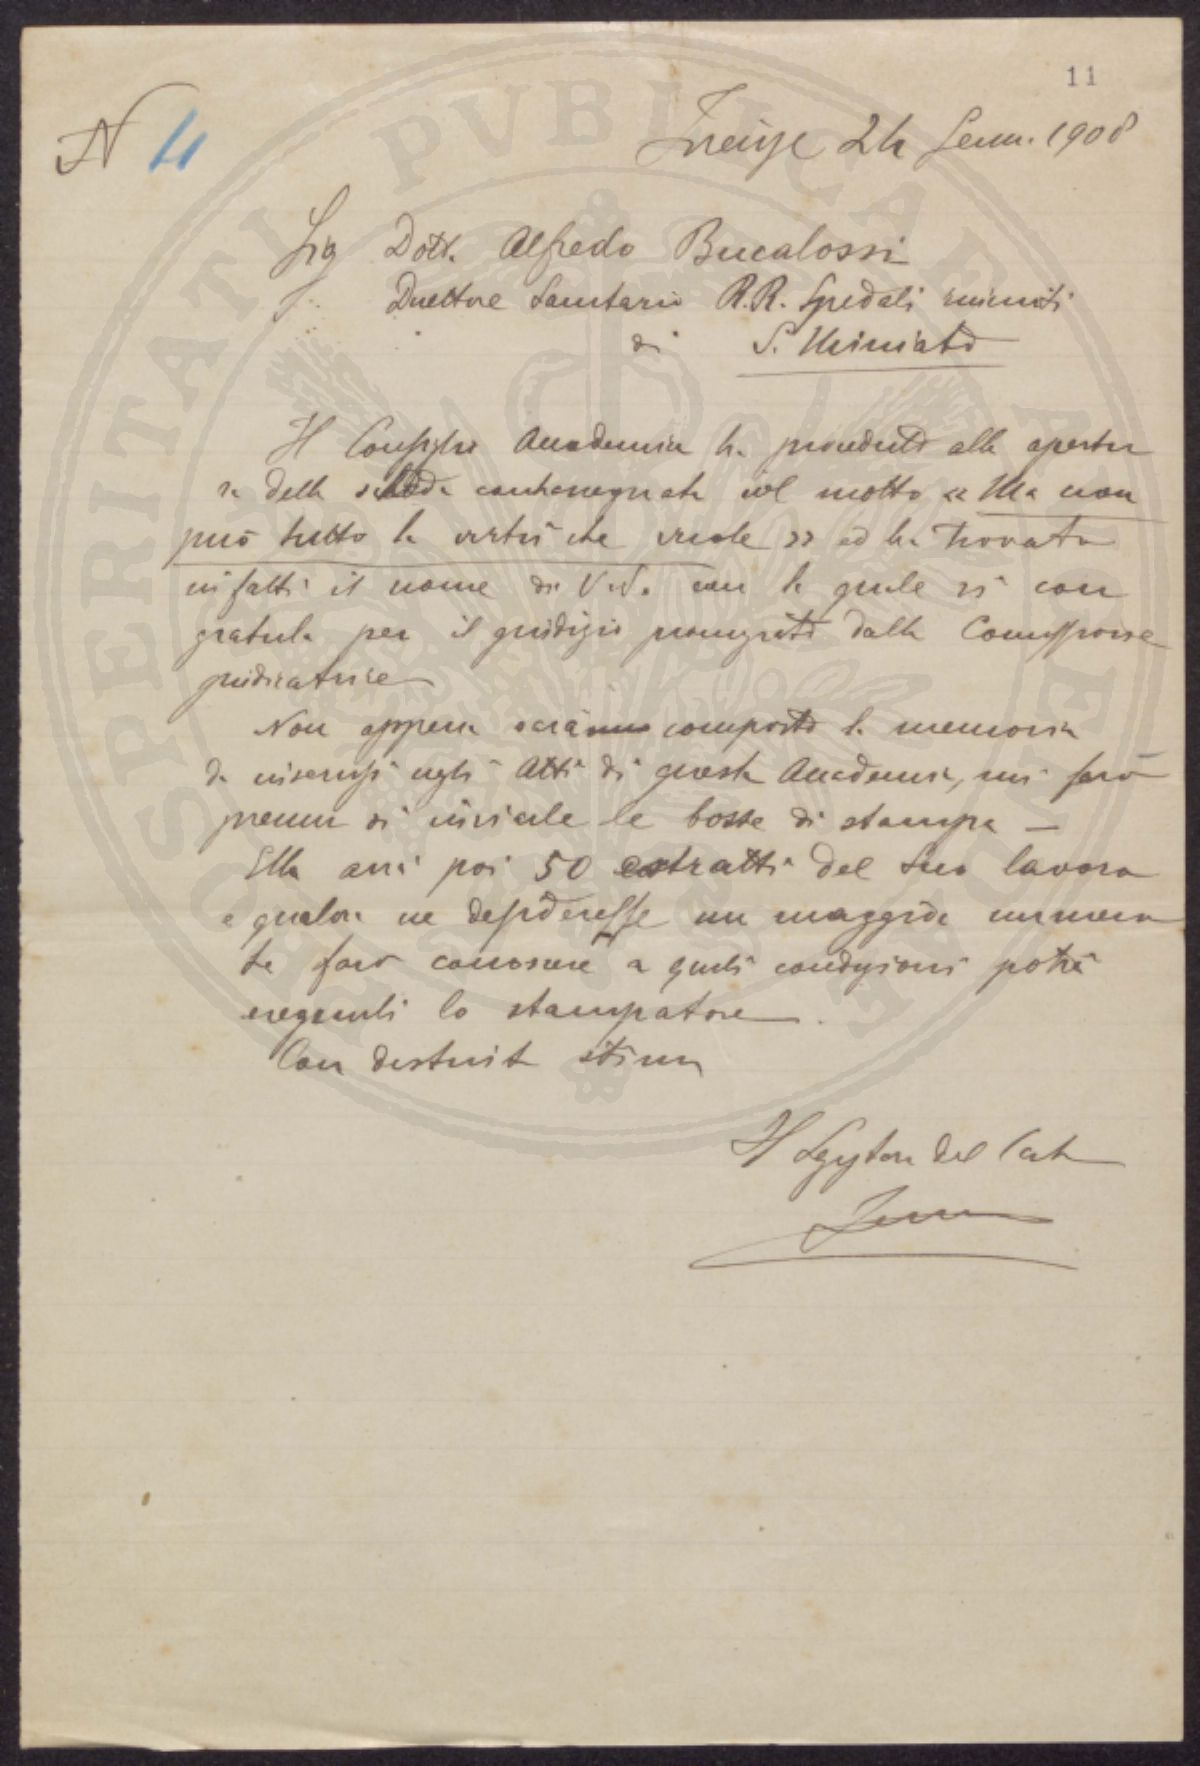 11
N 4
Firenze 24 Genn. 1908
Sig Dott. Alfredo Bucalossi
Direttore Sanitario R.R. Spedali riuniti
di S. Miniato
Il Consiglio Accademico ha proceduto alla apertu
ra della scheda contrassegnata col motto « Ma non
può tutto la virtù che vuole » ed ha trovato
infatti il nome di V.S. con la quale si con
gratula per il giudizio pronunziato dalla Commissione
giudicatrice
Non appena sarà composta la memoria
da inserirsi negli Atti di questa Accademia, mi farò
premura di inviarle le bozze di stampa —
Ella avrà poi 50 estratti del suo lavoro
e qualora ne desiderasse un maggior numero
le farò conoscere a quali condizioni potrà
eseguirli lo stampatore.
Con distinta stima
Il del